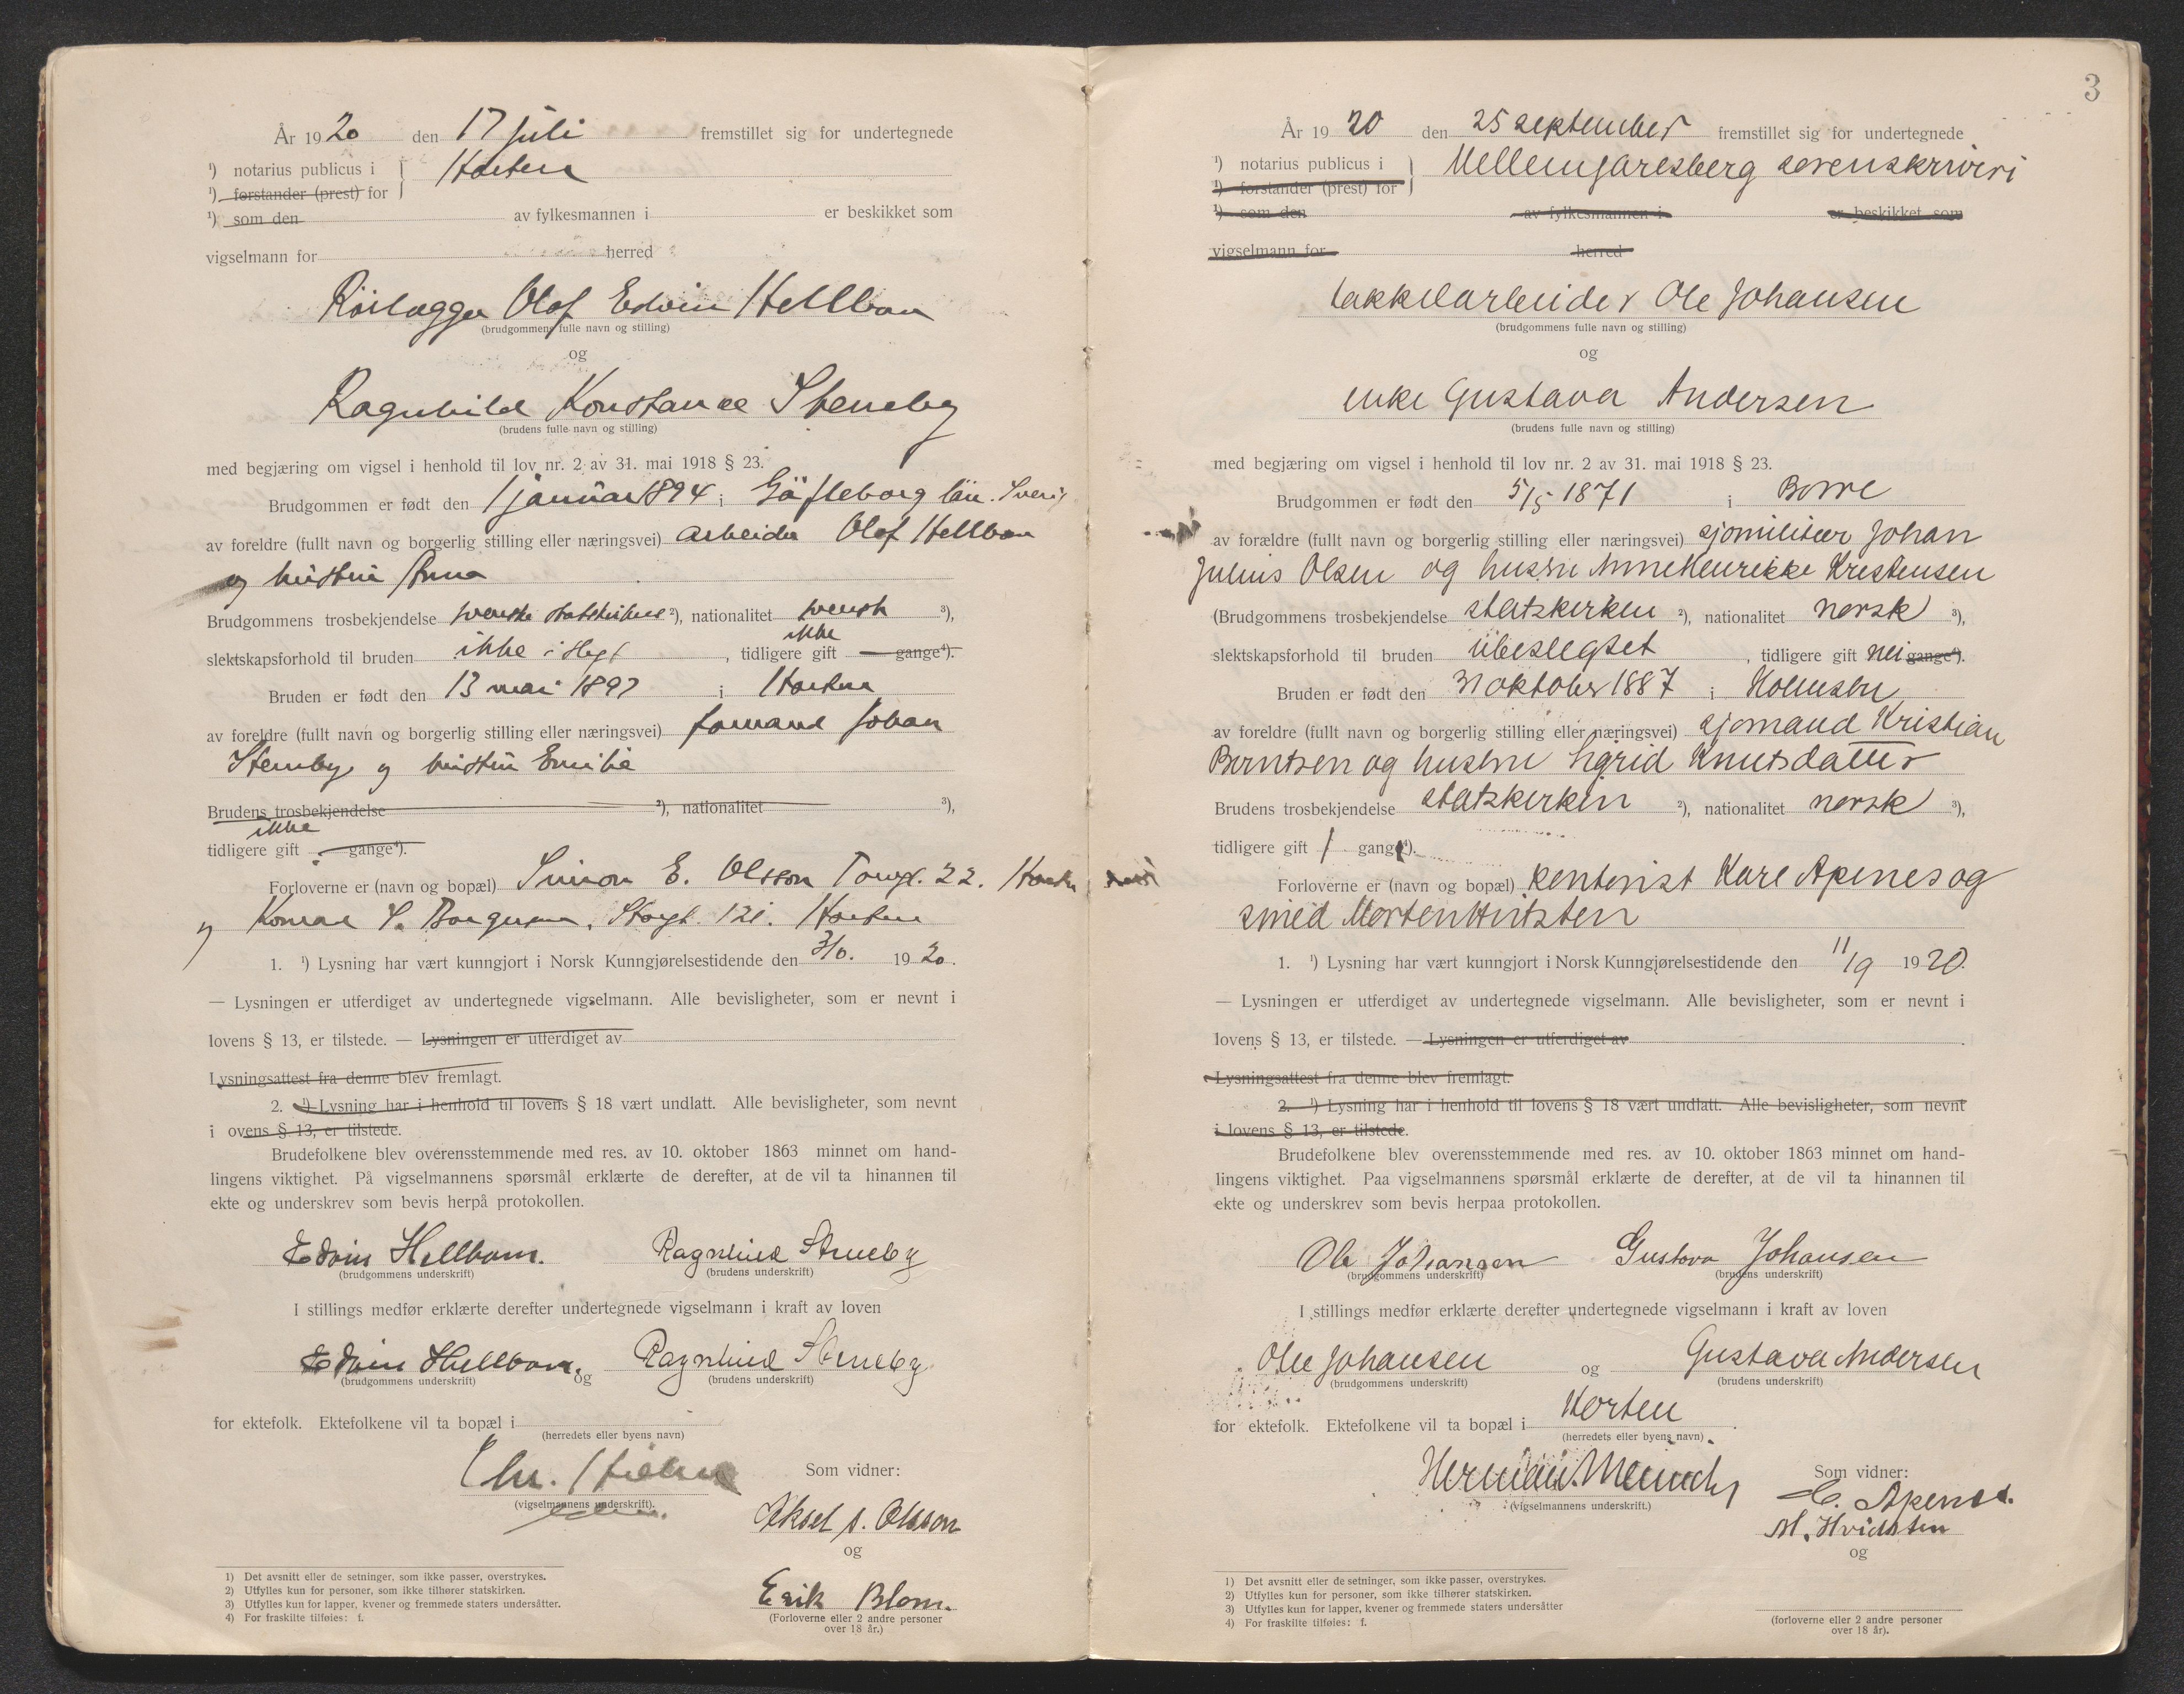 År 1920 den 17 juli fremstillet sig for undertegnede
¹) notarius publicus i Horten
¹) forstander (prest) for
¹) som den av fylkesmannen i er beskikket som
vigselmann for herred
Olof Edvin Hellbom
(brudgommens fulle navn og stilling)
og
Ragnhild Konstance Steneby
(brudens fulle navn og stilling)
med begjæring om vigsel i henhold til lov nr. 2 av 31. mai 1918 § 23.
Brudgommen er født den 1 januar 1894 i Gäfleborg län. Sverig
av foreldre (fullt navn og borgerlig stilling eller næringsvei) arbeider Olof Hellbom
og hustru Anna
Brudgommens trosbekjendelse svenske statskirke ²), nationalitet svensk ³),
slektskapsforhold til bruden ikke i slegt, tidligere gift ikke gange⁴).
Bruden er født den 13 mai 1897 i Horten
av foreldre (fullt navn og borgerlig stilling eller næringsvei) Johan
Steneby og hustru Emilie
Brudens trosbekjendelse ²), nationalitet ³),
ikke
tidligere gift gange⁴).
Forloverne er (navn og bopæl) Simon E. Olsson 22. Horten
og S. Storgt. Horten
1. ¹) Lysning har vært kunngjort i Norsk Kunngjørelsestidende den 1920.
— Lysningen er utferdiget av undertegnede vigselmann. Alle bevisligheter, som er nevnt i
lovens § 13, er tilstede. — Lysningen er utferdiget av
Lysningsattest fra denne blev fremlagt.
2. ¹) Lysning har i henhold til lovens § 18 vært undlatt. Alle bevisligheter, som nevnt
i ovens § 13, er tilstede.
Brudefolkene blev overensstemmende med res. av 10. oktober 1863 minnet om hand-
lingens viktighet. På vigselmannens spørsmål erklærte de derefter, at de vil ta hinannen til
ekte og underskrev som bevis herpå protokollen.
Edvin Hellbom. Ragnhild Steneby
(brudgommens underskrift) (brudens underskrift)
I stillings medfør erklærte derefter undertegnede vigselmann i kraft av loven
Edvin Hellbom. og Ragnhild Steneby
(brudgommens underskrift) (brudens underskrift)
for ektefolk. Ektefolkene vil ta bopæl i
(herredets eller byens navn)
Chr.
Som vidner:
(vigselmannens underskrift).
Aksel S. Olsson
og
Erik Blom.
(Forloverne eller 2 andre personer
over 18 år.)
1) Det avsnitt eller de setninger, som ikke passer, overstrykes.
2) Utfylles kun for personer, som ikke tilhører statskirken.
3) Utfylles kun for lapper, kvener og fremmede staters undersåtter.
4) For fraskilte tilføies: f.
3
År 1920 den 25 september fremstillet sig for undertegnede
¹) notarius publicus i Mellemjarlsberg sorenskriveri
¹) forstander (prest) for
¹) som den av fylkesmannen i er beskikket som
vigselmann for herred
takkelarbeider Ole Johansen
(brudgommens fulle navn og stilling)
og
enke Gustava Andersen
(brudens fulle navn og stilling)
med begjæring om vigsel i henhold til lov nr. 2 av 31. mai 1918 § 23.
Brudgommen er født den 5/5 1871 i Borre
av forældre (fullt navn og borgerlig stilling eller næringsvei) sjømilitær Johan
Julius Olsen og hustru Anne Henrikke Kristensen
(Brudgommens trosbekjendelse statskirken ²), nationalitet norsk ³),
slektskapsforhold til bruden ubeslegtet, tidligere gift nei gange⁴).
Bruden er født den 31 oktober 1887 i Holmsbu
av foreldre (fullt navn og borgerlig stilling eller næringsvei) sjømand Kristian
Berntsen og hustru Sigrid Knutsdatter
Brudens trosbekjendelse statskirken ²), nationalitet norsk ³),
tidligere gift 1 gang⁴).
Forloverne er (navn og bopæl) kontorist Kare Apenes og
smed Morten Hvitsten
1. ¹) Lysning har vært kunngjort i Norsk Kunngjørelsestidende den 11/9 1920.
— Lysningen er utferdiget av undertegnede vigselmann. Alle bevisligheter, som er nevnt i
lovens § 13, er tilstede. — Lysningen er utferdiget av
Lysningsattest fra denne blev fremlagt.
2. ¹) Lysning har i henhold til lovens § 18 vært undlatt. Alle bevisligheter, som nevnt
i lovens § 13, er tilstede.
Brudefolkene blev overensstemmende med res. av 10. oktober 1863 minnet om hand-
lingens viktighet. Paa vigselmannens spørsmål erklærte de derefter, at de vil ta hinannen til
ekte og underskrev som bevis herpaa protokollen.
Ole Johansen Gustava Johansen
(brudgommens underskrift) (brudens underskrift)
I stillings medfør erklærte derefter undertegnede vigselmann i kraft av loven
Ole Johansen og Gustava Andersen
(brudgommens underskrift) (brudens underskrift)
for ektefolk. Ektefolkene vil ta bopæl i Horten.
(herredets eller byens navn).
Herman Meinich
Som vidner:
(vigselmannens underskrift.)
Apenes.
M. Hvidsten
og
(forloverne eller 2 andre personer
over 18 år).
1) Det avsnitt eller de setninger, som ikke passer, overstrykes.
2) Utfylles kun for personer, som ikke tilhører statskirken.
3) Utfylles kun for lapper, kvener og fremmede staters undersåtter
4) For fraskilte tilføies: f.